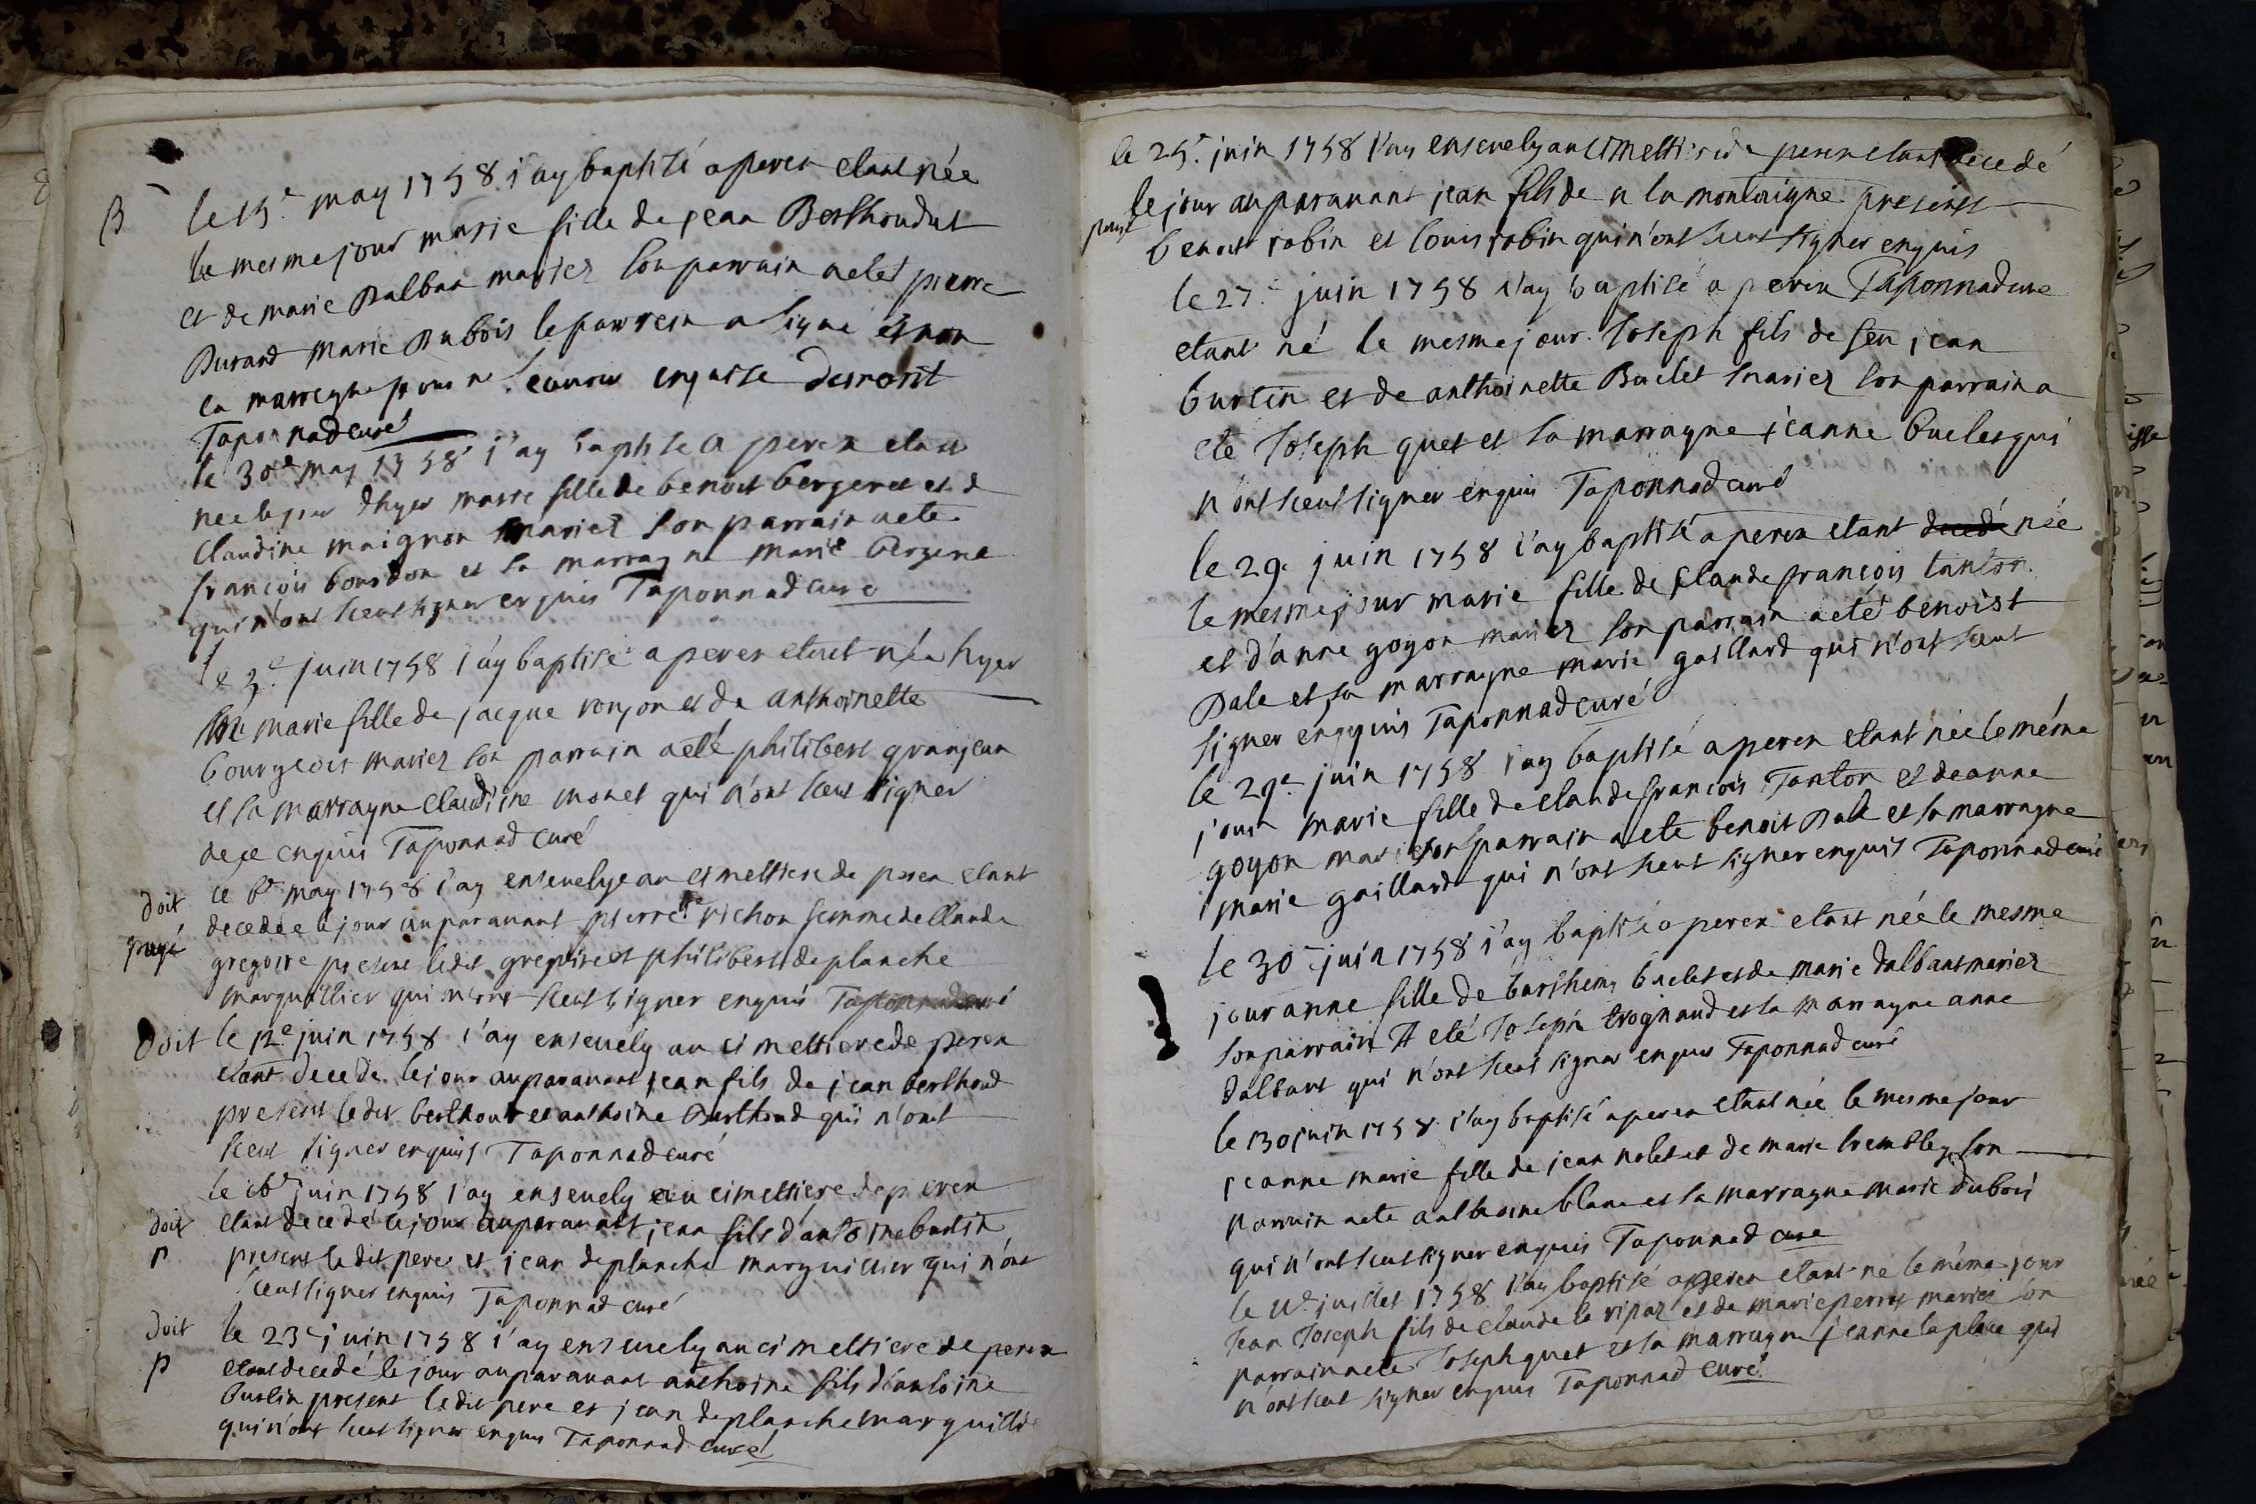 B
le 15e may 1758 j'ay baptisé a peren etant née
le mesme jour marie fille de jean Berthoudet
et de marie Dalban mariez son parrain a eté pierre
Durand marie Dubois le parrein a signé et non
la marregne pour ne enquise
Taponnad curé
le 30e may 1758 j'ay baptisé a peren etant
nee le jour d'hyer marie fille de benoit bergeret et de
Claudine maignon mariez son parrain a eté
françois bourdon et sa marragne marie bergere
qui n'ont sceut signer enquis Taponnad curé
le 3e juin 1758 j'ay baptisé a peren etant née hyer
marie fille de jacque ronjon et de anthoinette
bourgeois mariez son parrain a eté philibert granjean
et sa marragne claudine monet qui n'ont sceut signer
de ce enquis Taponnad curé
doit
payé
le 6e may 1758 j'ay ensevelye au cimettiere de peren etant
decedée le jour auparavant pierrette richon femme de Claude
gregoire present ledit gregoire et philibert deplanche
marguillier qui n'ont sceut signer enquis Taponnad curé
doit
le 12e juin 1758 j'ay ensevely au cimettiere de peren
etant decedé le jour auparavant jean fils de jean berthoud
present ledit berthoud et anthoine Berthoud qui n'ont
sceut signer enquis Taponnad curé
doit
p
le 16e juin 1758 j'ay ensevely au cimettiere de peren
etant decedé le jour auparavant jean fils d'antoine burtin
present ledit pere et jean deplanche marguillier qui n'ont
sceut signer enquis Taponnad curé
doit
p
le 23e juin 1758 j'ay ensevely au cimettiere de peren
etant decedé le jour auparavant anthoine fils d'antoine
Burtin present ledit pere et jean deplanche marguillier
qui n'ont sceut signer enquis Taponnad curé
le 25e juin 1758 j'ay ensevely au cimettiere de peren etant decedé
le jour auparavant jean fils de la montaigne presents
benoit robin et louis robin qui n'ont sceut signer enquis
le 27e juin 1758 j'ay baptisé a peren Taponnad curé
etant né le mesme jour Joseph fils de feu jean
burtin et de anthoinette Buclet mariez son parrain a
eté Joseph quet et sa marragne jeanne buclet qui
n'ont sceut signer enquis Taponnad curé
le 29e juin 1758 j'ay baptisé a peren etant decedé née
le mesme jour marie fille de Claude françois tanton
et d'anne goyon mariez son parrain a eté benoist
Pale et sa marragne marie gaillard qui n'ont sceut
signer enquis Taponnad curé
le 29e juin 1758 j'ay baptisé a peren etant née le méme
jour marie fille de claude françois Tanton et de anne
goyon mariez son parrain a eté benoit Pale et sa marragne
marie gaillard qui n'ont sceut signer enquis Taponnad curé
le 30e juin 1758 j'ay baptisé a peren etant née le mesme
jour anne fille de barthemy buclet et de marie dalbant mariez
son parrain A eté Joseph trognaud et sa marragne anne
dalbant qui n'ont sceut signer enquis Taponnad curé
le 30 juin 1758 j'ay baptisé a peren etant née le mesme jour
jeanne marie fille de jean nolet et de marie trembley son
parrain a eté anthoine blanc et sa marragne marie dubois
qui n'ont sceut signer enquis Taponnad curé
juillet 1758 j'ay baptisé a peren etant né le méme jour
Jean Joseph fils de claude la ripaz et de marie perret mariez son
parrain a eté Joseph quet et sa marragne jeanne laplace qui
n'ont sceut signer enquis Taponnad curé